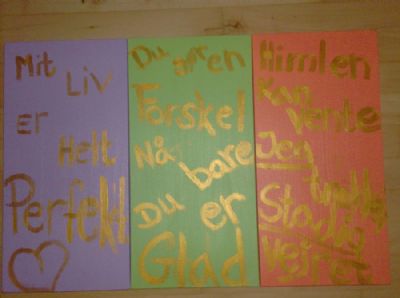 Mit
Liv
Er
Helt
Perfekt
Du gør en
Forskel
Når
bare
Du
er
Glad
Himlen
Kan
Vente
Jeg
Stadig
Vejret